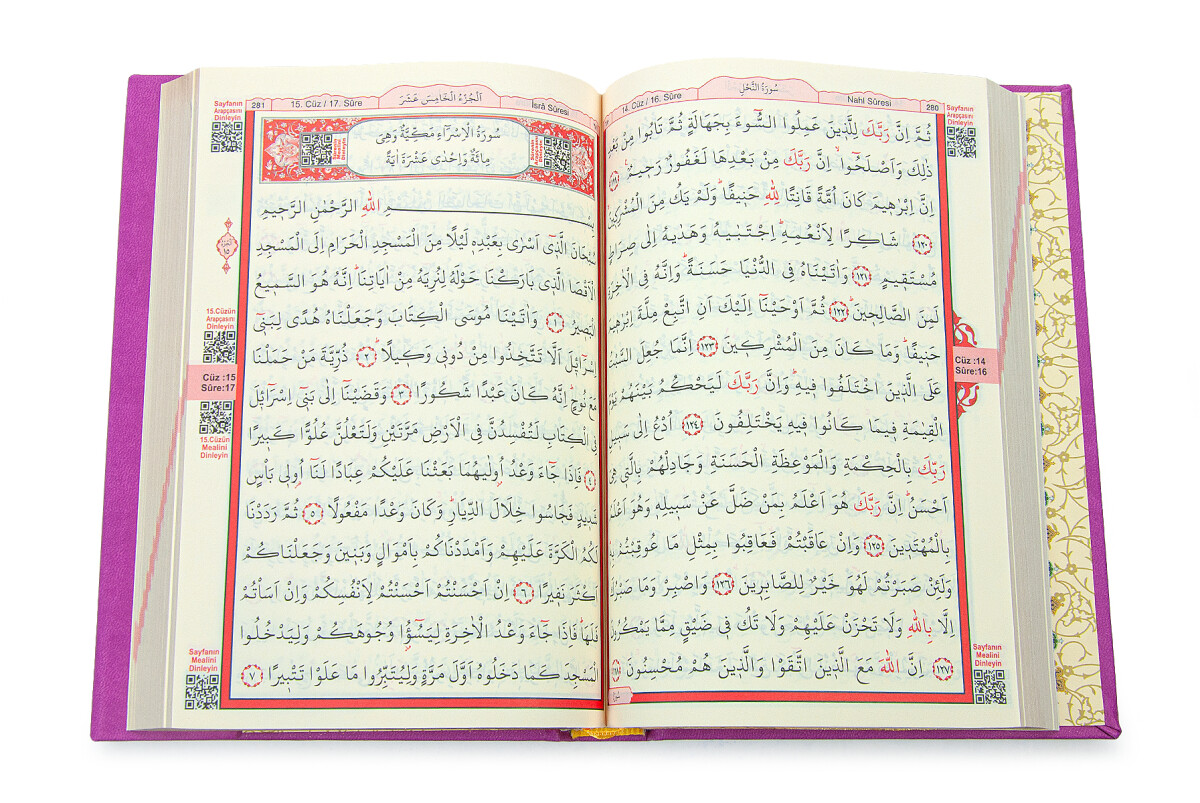 Sayfanın
Arapçasını
Dinleyin
280
Nahl Sûresi
سُورَةُ النَّحْلِ
14. Cüz / 16. Sûre
ثُمَّ اِنَّ رَبَّكَ لِلَّذ۪ينَ عَمِلُوا السُّٓوءَ بِجَهَالَةٍ ثُمَّ تَابُوا مِنْ بَعْدِ
ذٰلِكَ وَاَصْلَحُٓوا اِنَّ رَبَّكَ مِنْ بَعْدِهَا لَغَفُورٌ رَح۪يمٌ ﴿١١٩﴾
اِنَّ اِبْرٰه۪يمَ كَانَ اُمَّةً قَانِتًا لِلّٰهِ حَن۪يفًا وَلَمْ يَكُ مِنَ الْمُشْرِك۪ينَ
﴿١٢٠﴾ شَاكِرًا لِاَنْعُمِهِ اِجْتَبٰيهُ وَهَدٰيهُ اِلٰى صِرَاطٍ
مُسْتَق۪يمٍ ﴿١٢١﴾ وَاٰتَيْنَاهُ فِي الدُّنْيَا حَسَنَةً وَاِنَّهُ فِي الْاٰخِرَةِ
لَمِنَ الصَّالِح۪ينَ ﴿١٢٢﴾ ثُمَّ اَوْحَيْنَٓا اِلَيْكَ اَنِ اتَّبِعْ مِلَّةَ اِبْرٰه۪يمَ
حَن۪يفًا وَمَا كَانَ مِنَ الْمُشْرِك۪ينَ ﴿١٢٣﴾ اِنَّمَا جُعِلَ السَّبْتُ
عَلَى الَّذ۪ينَ اخْتَلَفُوا ف۪يهِ وَاِنَّ رَبَّكَ لَيَحْكُمُ بَيْنَهُمْ يَوْمَ
الْقِيٰمَةِ ف۪يمَا كَانُوا ف۪يهِ يَخْتَلِفُونَ ﴿١٢٤﴾ اُدْعُ اِلٰى سَب۪يلِ
رَبِّكَ بِالْحِكْمَةِ وَالْمَوْعِظَةِ الْحَسَنَةِ وَجَادِلْهُمْ بِالَّت۪ي هِيَ
اَحْسَنُ اِنَّ رَبَّكَ هُوَ اَعْلَمُ بِمَنْ ضَلَّ عَنْ سَب۪يلِه۪ وَهُوَ اَعْلَمُ
بِالْمُهْتَد۪ينَ ﴿١٢٥﴾ وَاِنْ عَاقَبْتُمْ فَعَاقِبُوا بِمِثْلِ مَا عُوقِبْتُمْ بِه۪
وَلَئِنْ صَبَرْتُمْ لَهُوَ خَيْرٌ لِلصَّابِر۪ينَ ﴿١٢٦﴾ وَاصْبِرْ وَمَا صَبْرُكَ
اِلَّا بِاللّٰهِ وَلَا تَحْزَنْ عَلَيْهِمْ وَلَا تَكُ ف۪ي ضَيْقٍ مِمَّا يَمْكُرُونَ
﴿١٢٧﴾ اِنَّ اللّٰهَ مَعَ الَّذ۪ينَ اتَّقَوْا وَالَّذ۪ينَ هُمْ مُحْسِنُونَ ﴿١٢٨﴾
Cüz :14
Sûre:16
Sayfanın
Mealini
Dinleyin
Sayfanın
Arapçasını
Dinleyin
281
15. Cüz / 17. Sûre
اَلْجُزْءُ الْخَامِسَ عَشَرَ
İsrâ Sûresi
سُورَةُ الْاِسْرَٓاءِ مَكِّيَّةٌ وَهِيَ
مِائَةٌ وَاِحْدٰى عَشْرَةَ اٰيَةً
بِسْمِ اللّٰهِ الرَّحْمٰنِ الرَّح۪يمِ
سُبْحَانَ الَّذ۪ٓي اَسْرٰى بِعَبْدِه۪ لَيْلًا مِنَ الْمَسْجِدِ الْحَرَامِ اِلَى الْمَسْجِدِ
الْاَقْصَا الَّذ۪ي بَارَكْنَا حَوْلَهُ لِنُرِيَهُ مِنْ اٰيَاتِنَا اِنَّهُ هُوَ السَّم۪يعُ
الْبَص۪يرُ ﴿١﴾ وَاٰتَيْنَا مُوسَى الْكِتَابَ وَجَعَلْنَاهُ هُدًى لِبَن۪ٓي
اِسْرَٓائ۪لَ اَلَّا تَتَّخِذُوا مِنْ دُون۪ي وَك۪يلًا ﴿٢﴾ ذُرِّيَّةَ مَنْ حَمَلْنَا
مَعَ نُوحٍ اِنَّهُ كَانَ عَبْدًا شَكُورًا ﴿٣﴾ وَقَضَيْنَٓا اِلٰى بَن۪ٓي اِسْرَٓائ۪لَ
فِي الْكِتَابِ لَتُفْسِدُنَّ فِي الْاَرْضِ مَرَّتَيْنِ وَلَتَعْلُنَّ عُلُوًّا كَب۪يرًا
﴿٤﴾ فَاِذَا جَٓاءَ وَعْدُ اُو۫لٰيهُمَا بَعَثْنَا عَلَيْكُمْ عِبَادًا لَنَٓا اُو۬ل۪ي بَأْسٍ
شَد۪يدٍ فَجَاسُوا خِلَالَ الدِّيَارِ وَكَانَ وَعْدًا مَفْعُولًا ﴿٥﴾ ثُمَّ رَدَدْنَا
لَكُمُ الْكَرَّةَ عَلَيْهِمْ وَاَمْدَدْنَاكُمْ بِاَمْوَالٍ وَبَن۪ينَ وَجَعَلْنَاكُمْ
اَكْثَرَ نَف۪يرًا ﴿٦﴾ اِنْ اَحْسَنْتُمْ اَحْسَنْتُمْ لِاَنْفُسِكُمْ وَاِنْ اَسَأْتُمْ
فَلَهَا فَاِذَا جَٓاءَ وَعْدُ الْاٰخِرَةِ لِيَسُٓؤُ۫ا وُجُوهَكُمْ وَلِيَدْخُلُوا
الْمَسْجِدَ كَمَا دَخَلُوهُ اَوَّلَ مَرَّةٍ وَلِيُتَبِّرُوا مَا عَلَوْا تَتْب۪يرًا ﴿٧﴾
15.Cüzün
Arapçasını
Dinleyin
Cüz :15
Sûre:17
15.Cüzün
Mealini
Dinleyin
Sayfanın
Mealini
Dinleyin